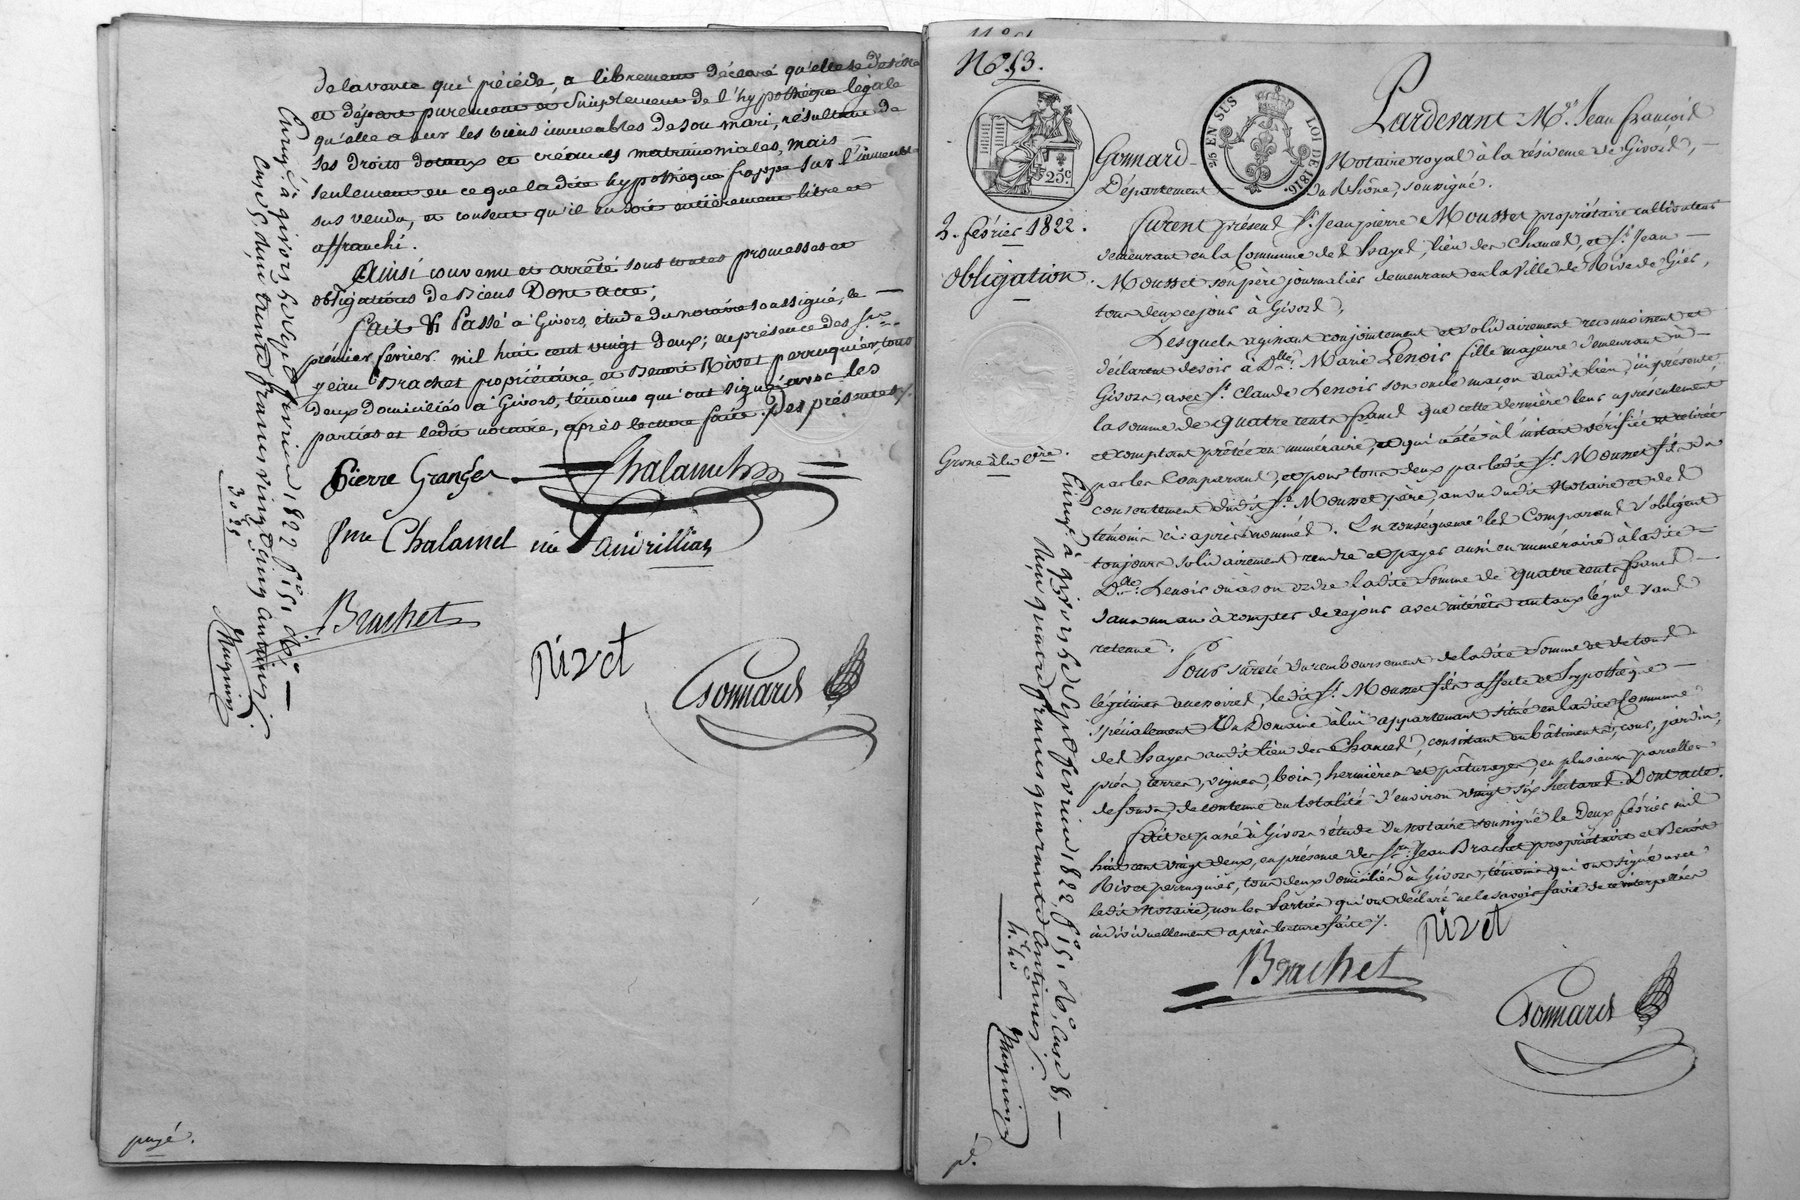 de la vente qui précéde, a librement déclaré qu'elle se désiste
et départ purement et simplement de l'hypothèque légale
qu'elle a sur les biens immeubles de son mari, résultant de
ses droits dotaux et créances matrimoniales, mais
seulement en ce que ladite hypothèque frappe sur l'immeuble
sus vendu, et consent qu'il en soit entièrement libre et
affranchi.
Ainsi convenu et arrêté sous toutes promesses et
obligations de Biens Dont acte;
Fait & Passé à Givors, étude du notaire soussigné, le —
premier fevrier mil huit cent vingt deux; en présence des Srs
jean Brachet propriétaire et Benoit Rivet perruquier, tous
deux domiciliés à Givors, témoins qui ont signé avec les
parties et ledit notaire, après lecture faite. des présentes ./.
Pierre Granger Chalamel
fme Chalamel née
Brachet
Rivet
Gonnard
Enregé à givors le sept fevrier 1822 fo 51, Ro
Case 5. reçu trente francs vingt cinq centimes
30 25
payé.
No 53.
25 EN SUS LOI DE 1816.
25c
2. février 1822.
Obligation.
Grosse à la Cre.
Pardevant Me. Jean françois
Gonnard Notaire royal à la résidence de Givors, —
Département du Rhône, soussigné.
Furent présens Sr. Jean pierre Mousset propriétaire cultivateur
demeurant en la Commune des hayes, lieu des Chancel, et Sr. Jean —
Mousset son père journalier demeurant en la Ville de Rive de Gier,
tous deux ce jour à Givors,
Lesquels agissant conjointement et solidairement reconnoissent et
déclarent devoir à Dlle. Marie Lenoir fille majeure demeurant à —
Givors, avec Sr. Claude Lenoir son oncle maçon audit lieu, ici présente,
la somme de quatre cents francs que cette dernière leur a présentement
et comptant prêtée en numéraire, et qui a été à l'instant vérifiée et retirée
par les Comparans, et pour tous deux par ledit Sr. Mousset fils du
consentement dudit Sr. Mousset père, au vu dudit Notaire et des
témoins ci-après nommés. En conséquence les Comparans s'obligent
toujours solidairement rendre et payer aussi en numéraire à ladite —
Dlle. Lenoir ou à son ordre ladite somme de quatre cents francs —
dans un an à compter de ce jour avec intérêts au taux légal sans
retenue.
Pour sûreté du remboursement de ladite somme et de tous
légitimes accessoires, ledit Sr. Mousset fils affecte et hypothèque —
spécialement Un Domaine à lui appartenant situé en ladite Commune
des hayes audit lieu des Chancel, consistant en bâtiments, cour, jardin,
prés, terres, vignes, bois, hermières et pâturages, en plusieurs parcelles
de fonds, de contenue en totalité d'environ vingt six hectares. Dont acte.
Fait et passé à Givors étude du notaire soussigné le Deux février mil
huit cent vingt deux, en présence des Srs. Jean Brachet propriétaire et Benoit
Rivet perruquier, tous deux domiciliés à Givors, témoins qui ont signé avec
ledit Notaire, non les Parties qui ont déclaré ne le savoir faire de ce interpellées
individuellement après lecture faite ./.
Rivet
Brachet
Gonnard
Enregé à givors le sept fevrier 1822 fo 51, Ro, Case 8, —
Reçu quatre francs quarante centimes
4. 40
p.